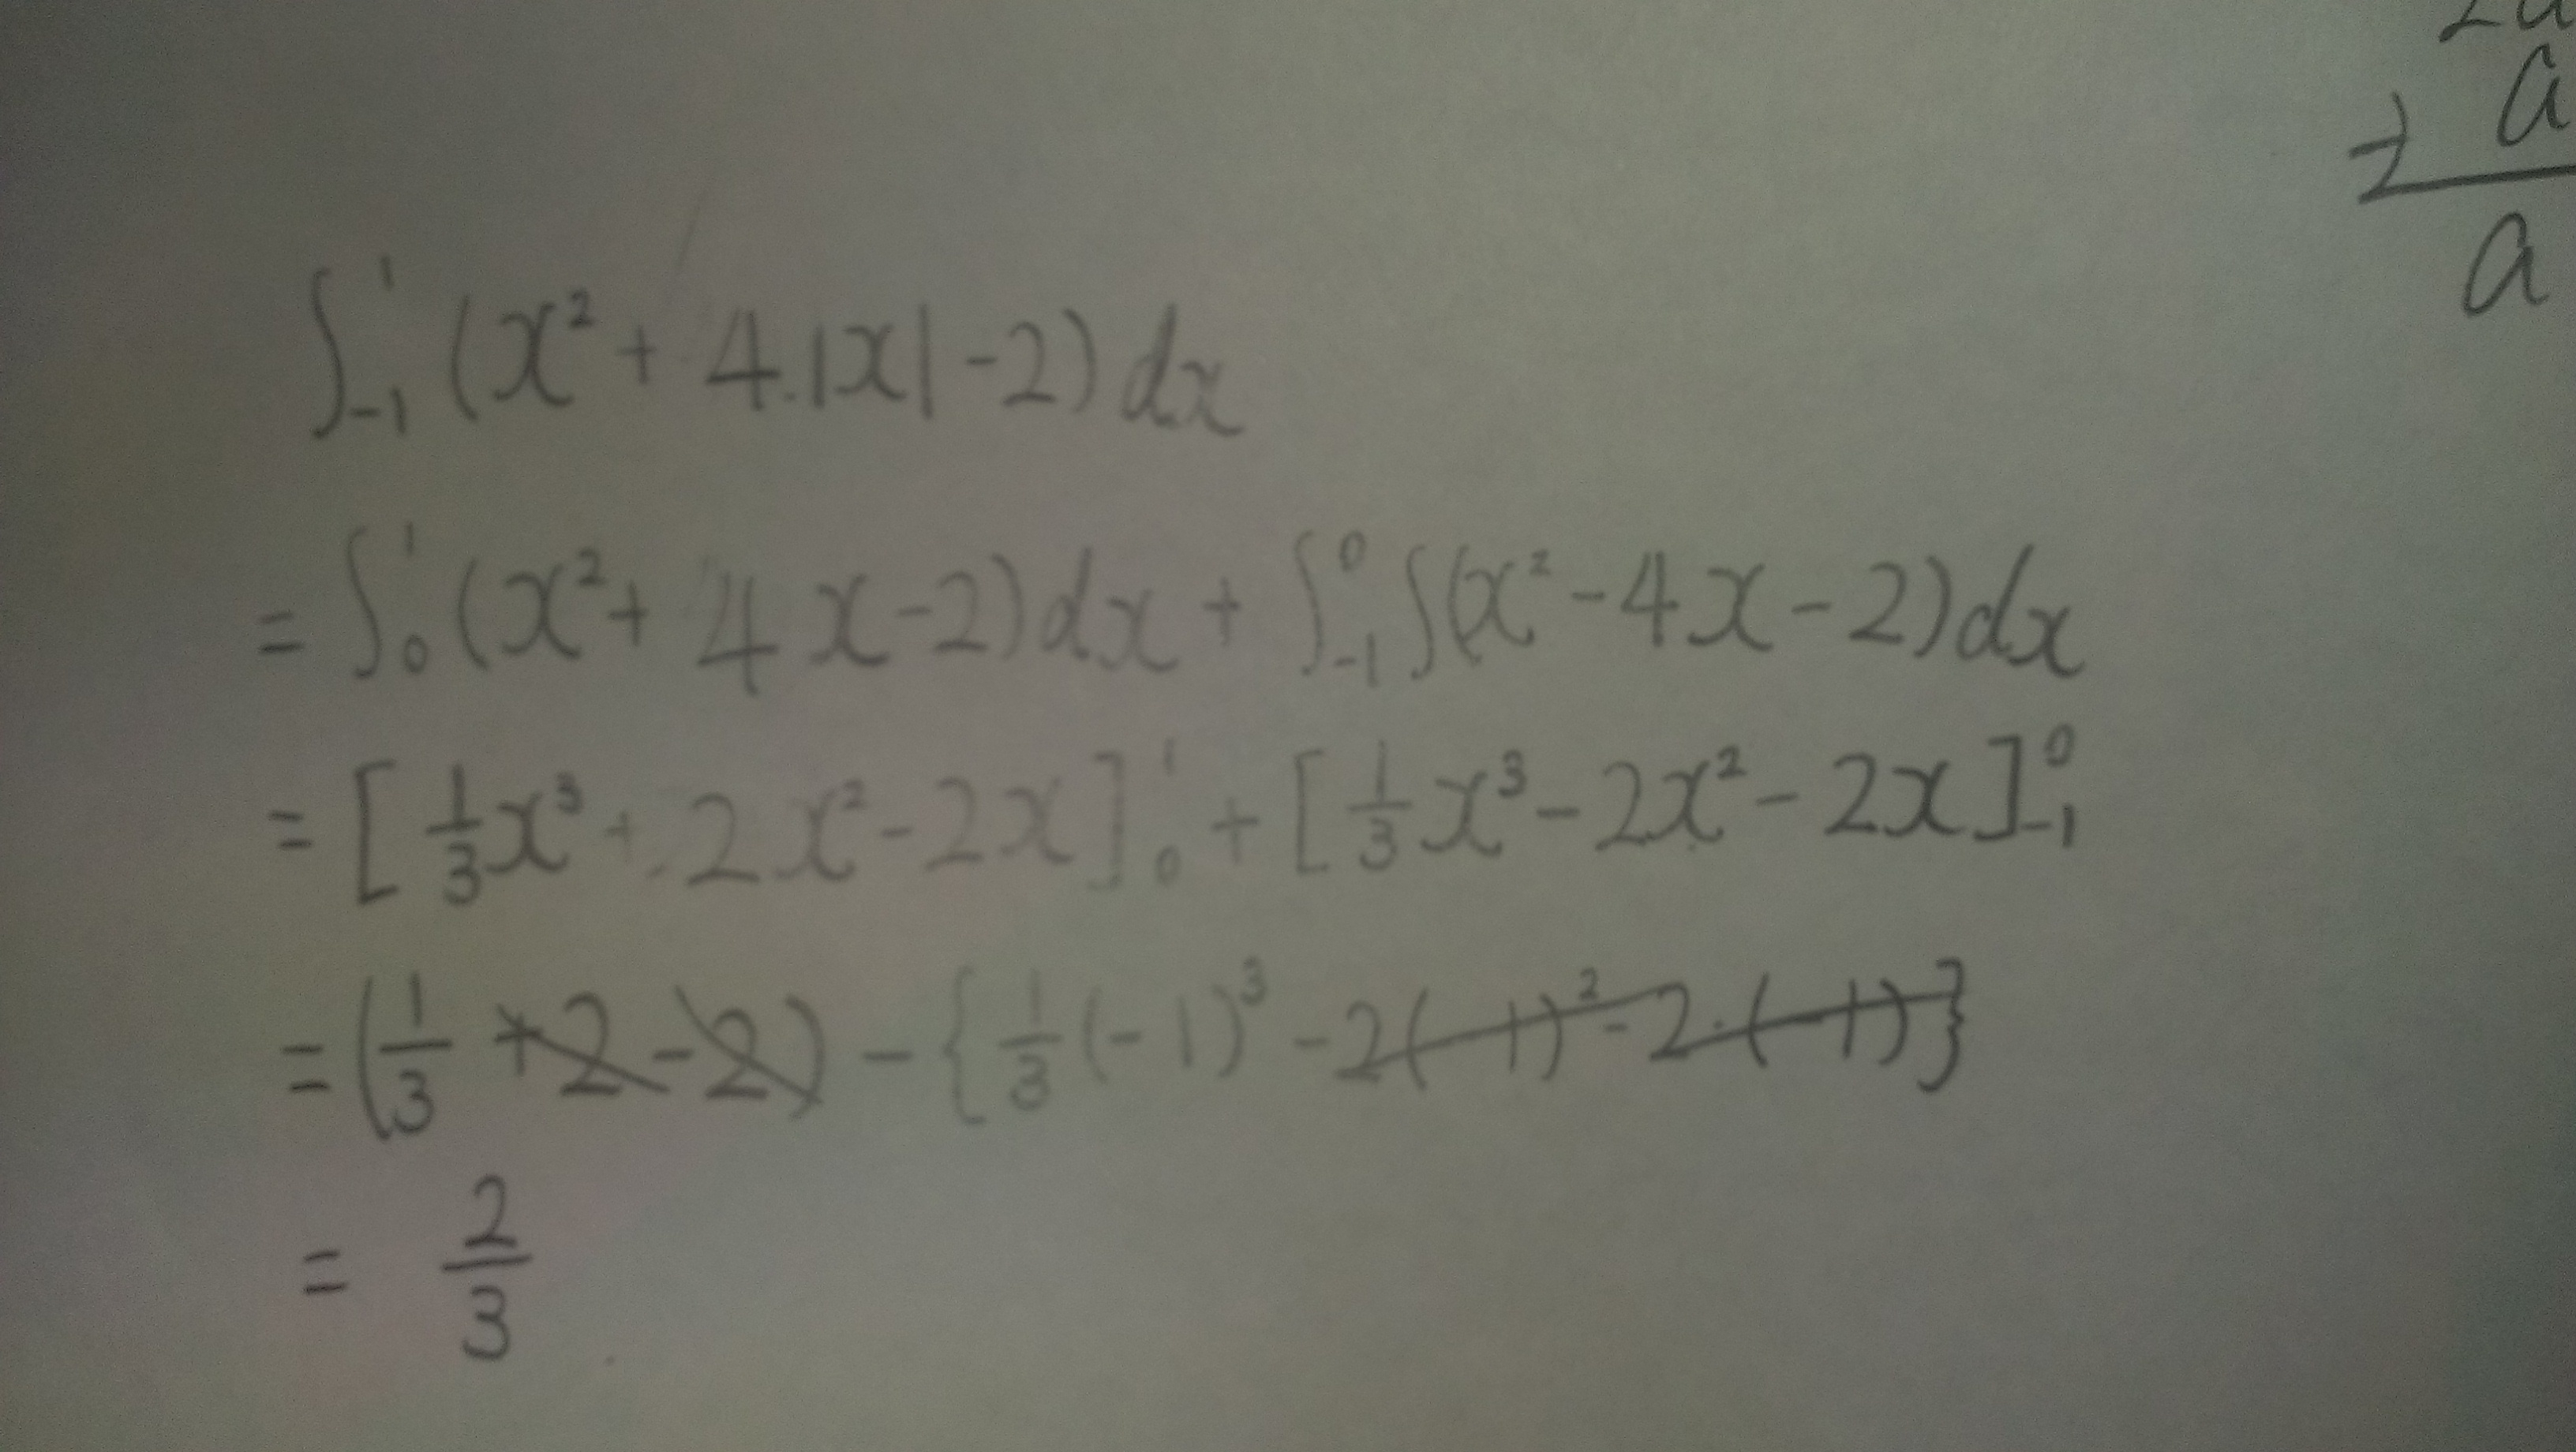 2a
-) a
a
∫₋₁¹ (x² + 4.|x| - 2) dx
= ∫₀¹ (x² + 4x - 2) dx + ∫₋₁⁰ ∫(x² - 4x - 2) dx
= [1/3 x³ + 2x² - 2x]₀¹ + [1/3 x³ - 2x² - 2x]₋₁⁰
= (1/3 + 2 - 2) - {1/3 (-1)³ - 2(-1)² - 2·(-1)}
= 2/3